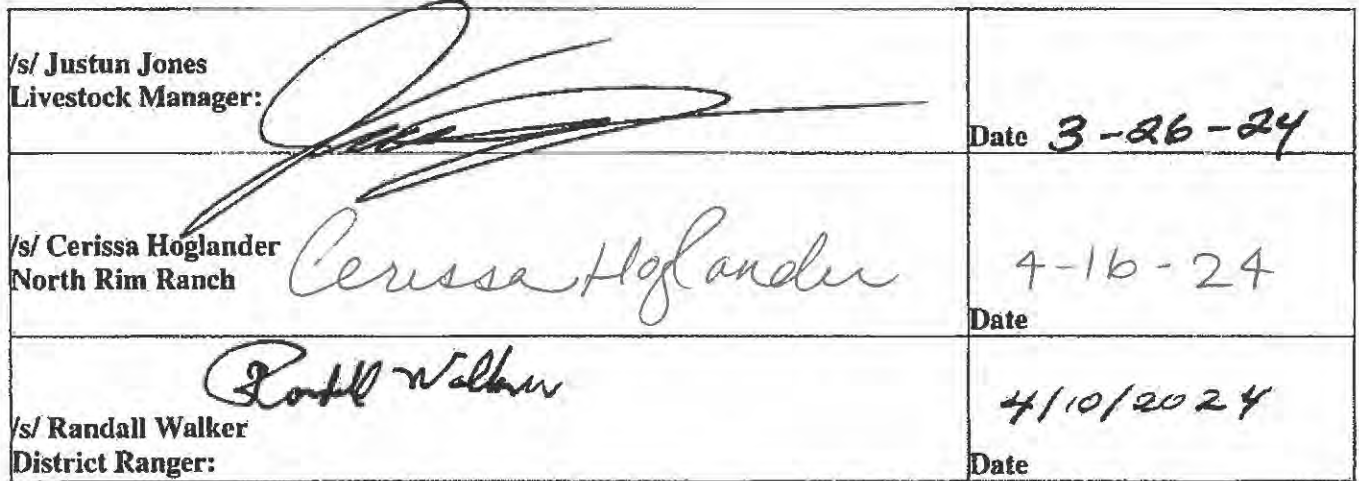 /s/ Justun Jones
Livestock Manager:
Date 3-26-24
/s/ Cerissa Hoglander
North Rim Ranch
Cerissa Hoglander
4-16-24
Date
Randall Walker
/s/ Randall Walker
District Ranger:
4/10/2024
Date